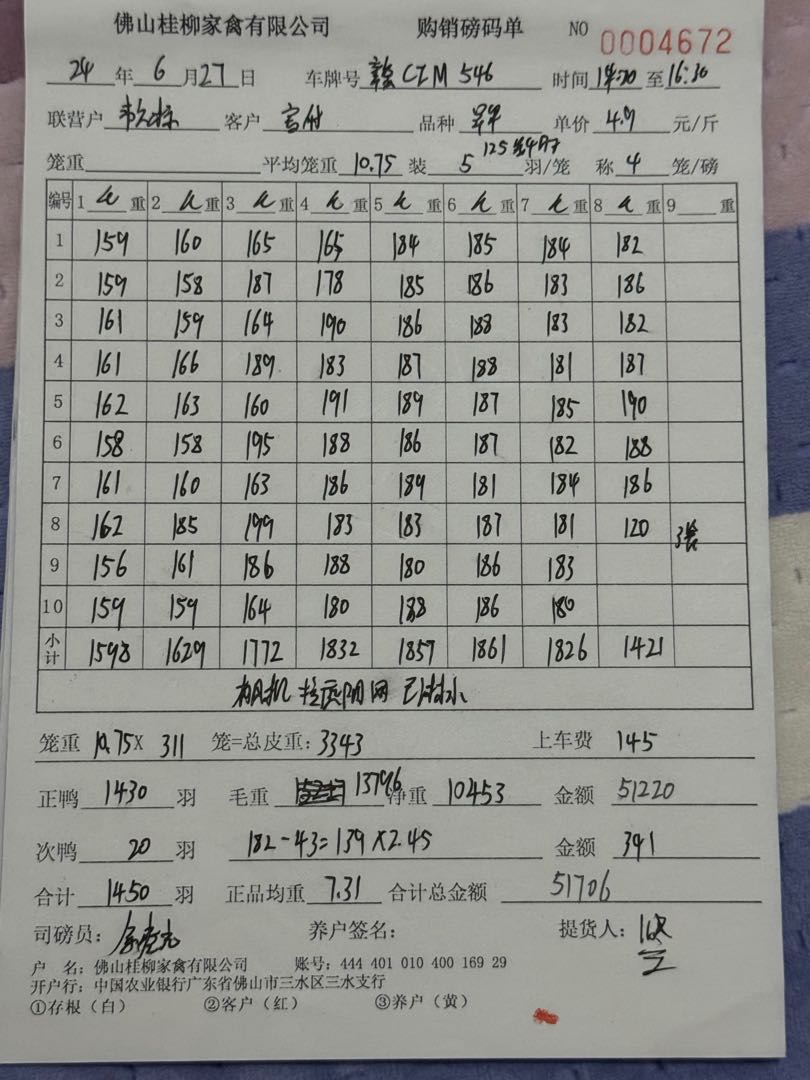 佛山桂柳家禽有限公司 购销磅码单 NO 0004672
24 年 6 月 27 日 车牌号 CZM 546 时间 14:20 至 16:30
联营户 客户 品种 单价 4.9 元/斤
笼重 平均笼重 10.75 装 5 羽/笼 称 4 笼/磅
编号 1 重 2 重 3 重 4 重 5 重 6 重 7 重 8 重 9 重
1 159 160 165 165 184 185 184 182
2 159 158 187 178 185 186 183 186
3 161 159 164 190 186 188 183 182
4 161 166 189 183 187 188 181 187
5 162 163 160 191 189 187 185 190
6 158 158 195 188 186 187 182 188
7 161 160 163 186 189 181 184 186
8 162 185 199 183 183 187 181 120 3笼
9 156 161 186 188 180 186 183
10 159 159 164 180 188 186 180
小计 1598 1629 1772 1832 1857 1861 1826 1421
笼重 10.75X 311 笼=总皮重: 3343 上车费 145
正鸭 1430 羽 毛重 13796 净重 10453 金额 51220
次鸭 20 羽 182-43=139X2.45 金额 341
合计 1450 羽 正品均重 7.31 合计总金额 51706
司磅员: 养户签名: 提货人:
户 名: 佛山桂柳家禽有限公司 账号: 444 401 010 400 169 29
开户行: 中国农业银行广东省佛山市三水区三水支行
①存根（白） ②客户（红） ③养户（黄）